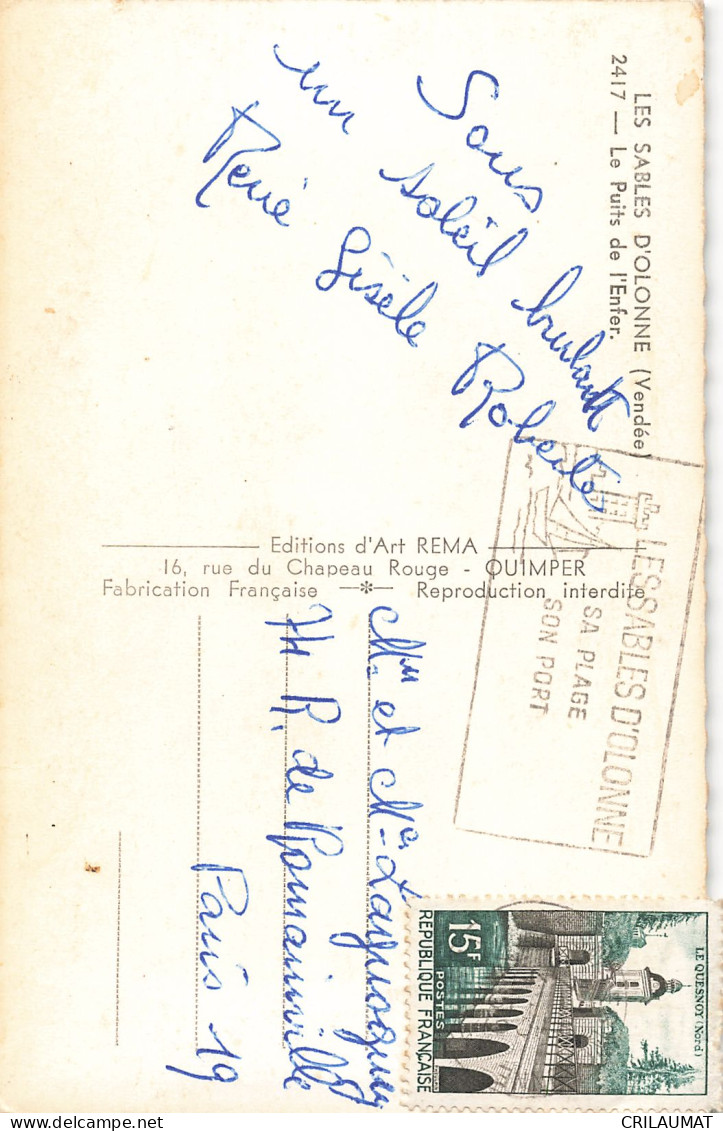 LES SABLES D'OLONNE (Vendée)
2417 — Le Puits de l'Enfer.
Sous
un soleil brulant
René Gisèle Roberte
Editions d'Art REMA
16, rue du Chapeau Rouge - QUIMPER
Fabrication Française —*— Reproduction interdite
LES SABLES D'OLONNE
SA PLAGE
SON PORT
et
R. de Romainville
Paris 19
LE QUESNOY (Nord)
15F
POSTES
REPUBLIQUE FRANÇAISE
CRILAUMAT